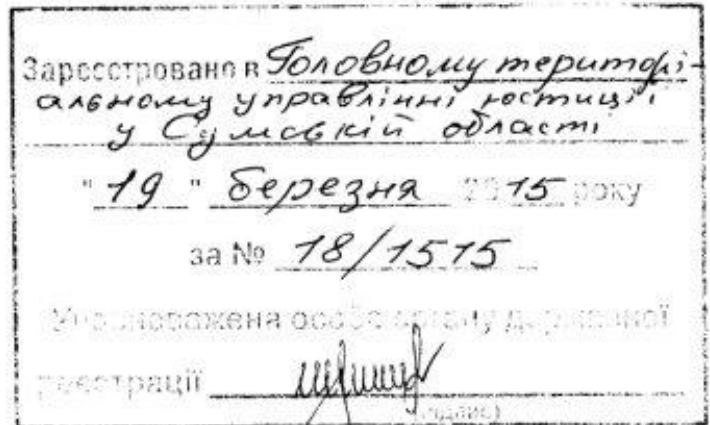 Зареєстровано в Головному територі-
альному управлінні юстиції
у Сумській області
"19" березня 2015 року
за № 18/1515
Уповноважена особа органу державної
реєстрації
(підпис)